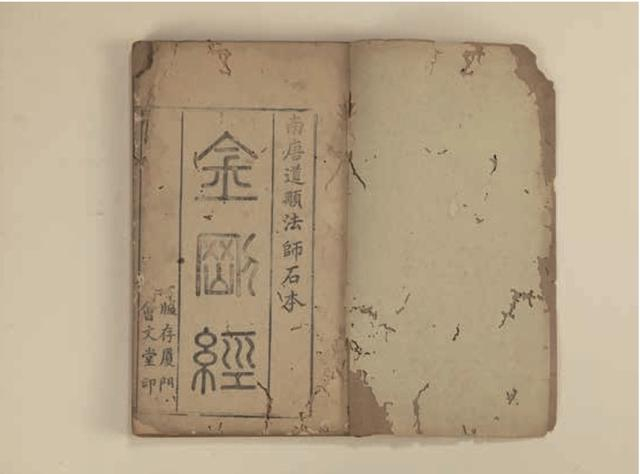 南唐道顒法師石本
金剛經
版存厦門
會文堂印